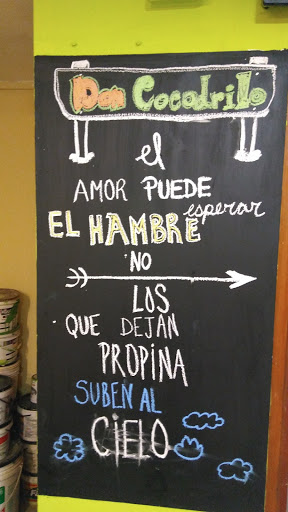 Don Cocodrilo
el
AMOR PUEDE
esperar
EL HAMBRE
NO
LOS
QUE DEJAN
PROPINA
SUBEN AL
CIELO